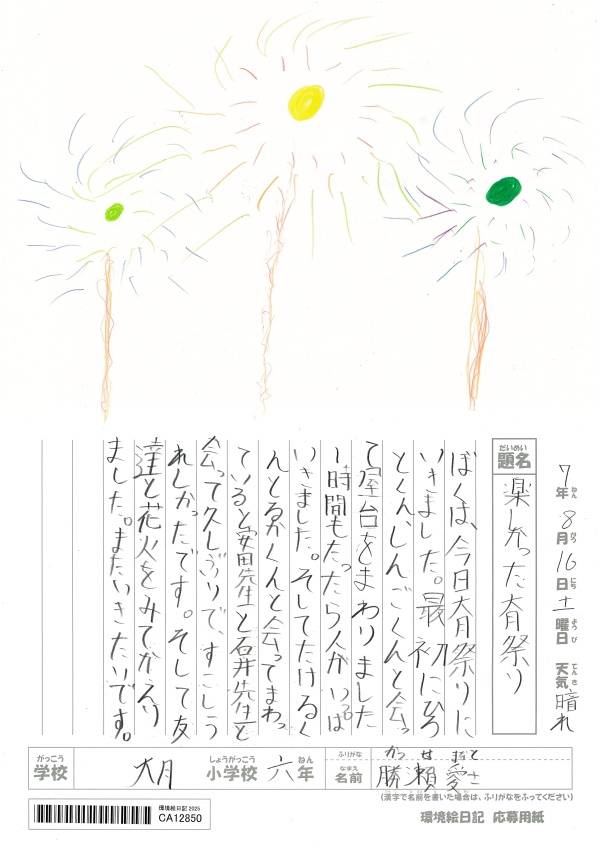 7年8月16日土曜日 天気晴れ
ねん がつ にち ようび てんき
だいめい
題名 楽しかった大月祭り
ぼくは、今日大月祭りに
いきました。最初にひろ
とくん、しんごくんと会っ
て屋台をまわりました
1時間もたったら人がいっぱ
いきました。そしてたけるく
んとるかくんと会ってまわっ
ていると安田先生と石井先生と
会って久しぶりで、すこしう
れしかったです。そして友
達と花火をみてかえり
ました。またいきたいです。
がっこう しょうがっこう ねん ふりがな かつ せ まさと
学校 大月 小学校 六年 なまえ 名前 勝瀬 愛
(漢字で名前を書いた場合は、ふりがなをふってください)
環境絵日記 2025
CA12850
環境絵日記 応募用紙